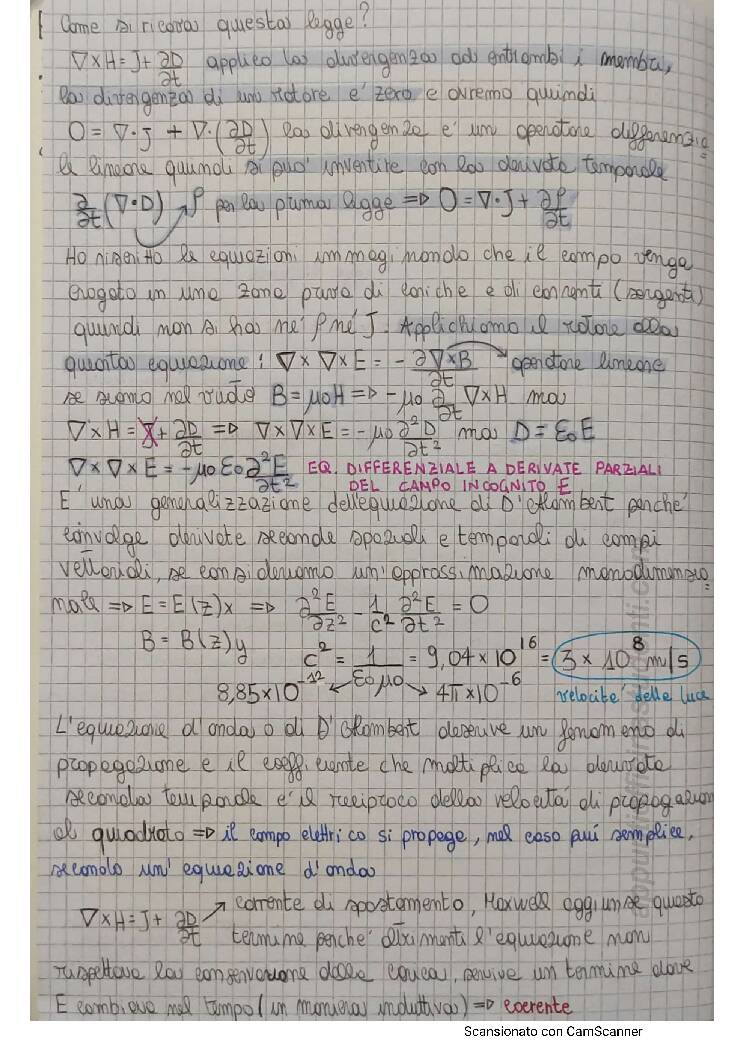 Come si ricava questa legge?
∇×H = J + ∂D/∂t applico la divergenza ad entrambi i membri,
la divergenza di un rotore e' zero e avremo quindi
0 = ∇·J + ∇·(∂D/∂t) la divergenza e' un operatore differenzia=
le lineare quindi si puo' invertire con la derivata temporale
∂/∂t (∇·D) → ρ per la prima legge => 0 = ∇·J + ∂ρ/∂t
Ho riscritto le equazioni immaginando che il campo venga
erogato in una zona priva di cariche e di correnti (sorgenti)
quindi non si ha né ρ né J. Applichiamo il rotore alla
quarta equazione: ∇×∇×E = - ∂∇×B/∂t → operatore lineare
se siamo nel vuoto B = μ0H => -μ0 ∂/∂t ∇×H ma
∇×H = J + ∂D/∂t => ∇×∇×E = -μ0 ∂²D/∂t² ma D = ε0E
∇×∇×E = -μ0 ε0 ∂²E/∂t² EQ. DIFFERENZIALE A DERIVATE PARZIALI
DEL CAMPO INCOGNITO E
E' una generalizzazione dell'equazione di D'Alambert perché
coinvolge derivate seconde spaziali e temporali di campi
vettoriali, se consideriamo un'approssimazione monodimensio=
nale => E = E(z)x => ∂²E/∂z² - 1/c² ∂²E/∂t² = 0
B = B(z)y
c² = 1/ε0μ0 = 9,04×10^16 = 3×10^8 m/s
8,85×10^-12 ← → 4π×10^-6 velocita' della luce
L'equazione d'onda o di D'Alambert descrive un fenomeno di
propagazione e il coefficiente che moltiplica la derivata
seconda temporale e' il reciproco della velocitá di propagazion
al quadrato => il campo elettrico si propaga, nel caso piú semplice,
secondo un' equazione d'onda
∇×H = J + ∂D/∂t → corrente di spostamento, Maxwell aggiunse questo
termine perche' altrimenti l'equazione non
rispettava la conservazione della carica, serviva un termine dove
E cambiava nel tempo (in maniera induttiva) => coerente
Scansionato con CamScanner